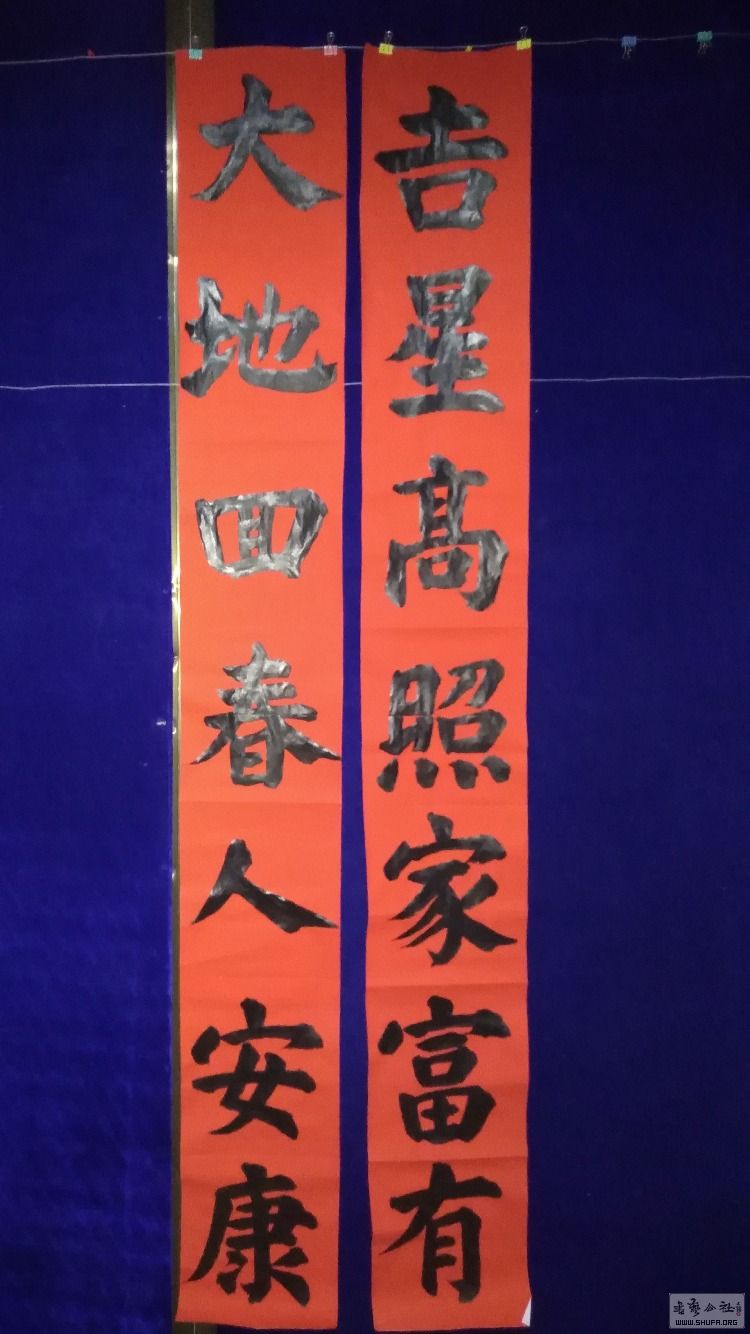 吉星髙照家富有
大地回春人安康
WWW.SHUFA.ORG